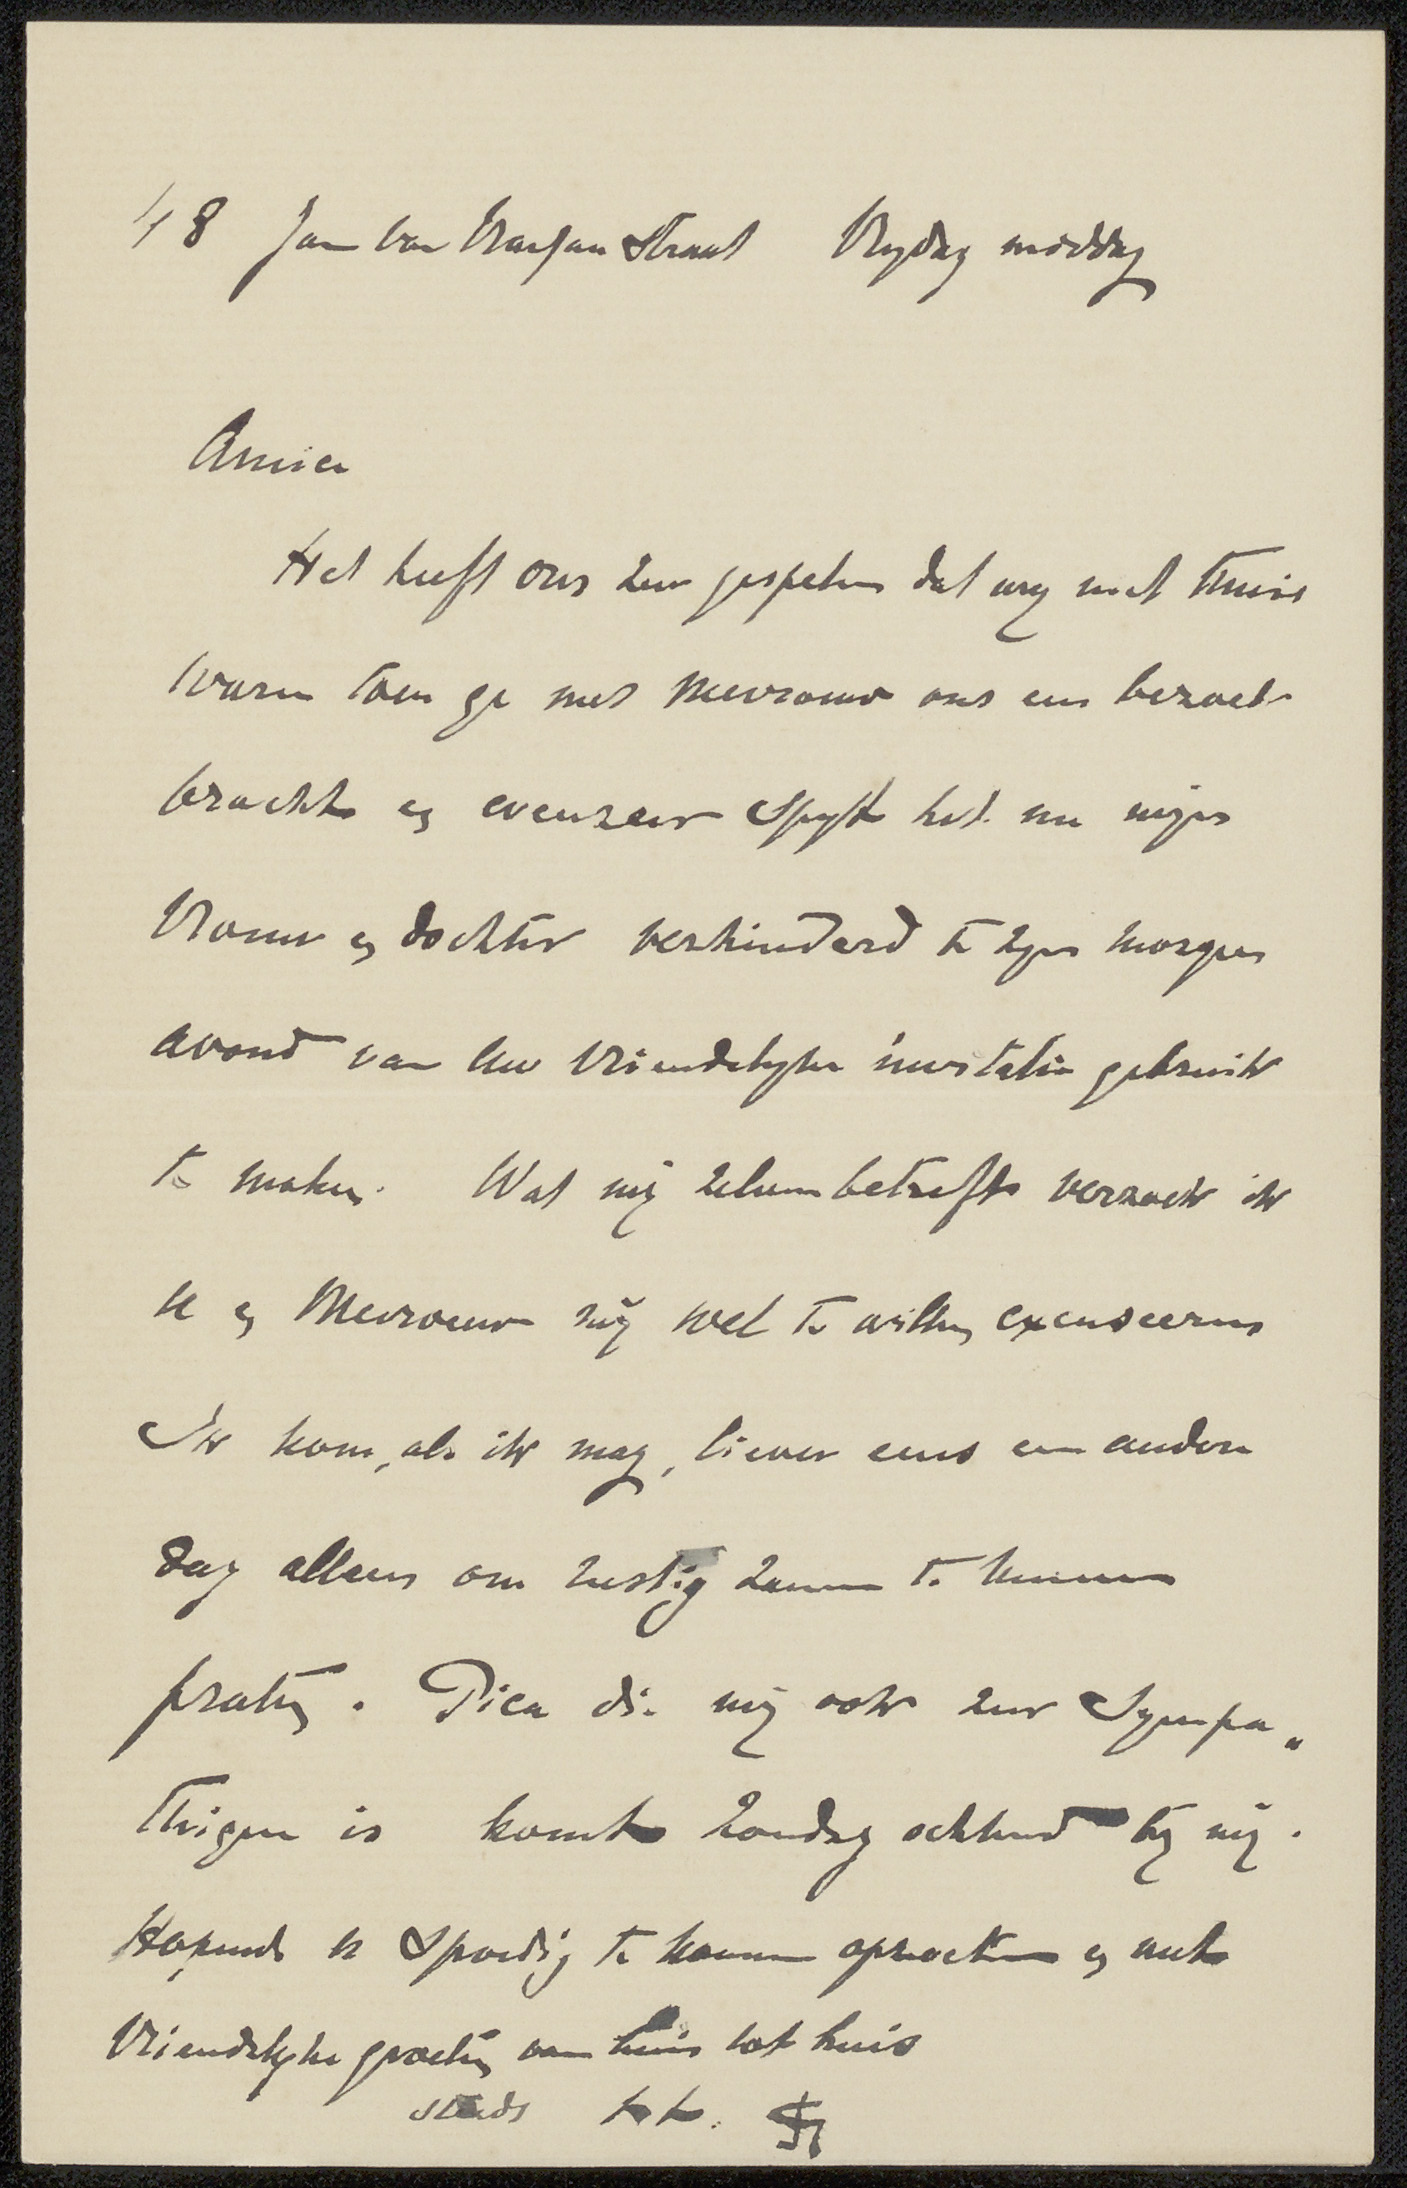 48 Jan van Nassau Straat Vrydag middag
Amice
Het heeft ons zeer gespeten dat wy niet thuis
waren toen ge met Mevrouw ons een bezoek
bracht en evenzeer spyt het nu mijn
Vrouw en dochter verhinderd te zyn morgen
avond van Uw vriendelyke invitatie gebruik
te maken. Wat mij zelven betreft verzoek ik
U en Mevrouw mij wel te willen excuseeren
Ik kom, als ik mag, liever eens een andere
dag alleen om rustig samen te kunnen
praten. Pica die mij ook zeer Sympa„
thiger is komt Zondag ochtend by mij.
Hopende U spoedig te komen opzoeken en met
Vriendelyke groeten van huis tot huis
steeds tt.